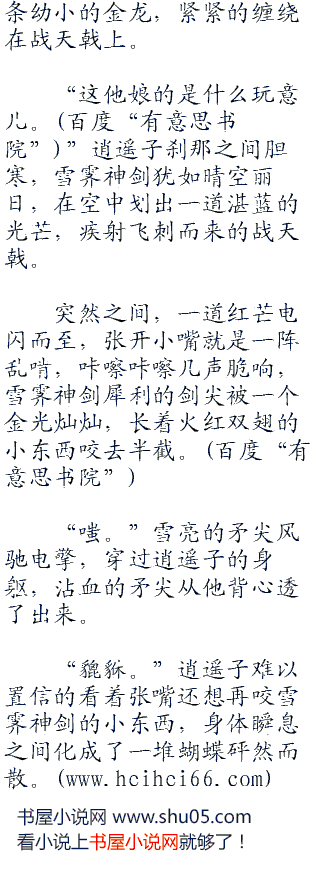 条幼小的金龙，紧紧的缠绕
在战天戟上。
“这他娘的是什么玩意
儿。(百度“有意思书
院”)”逍遥子刹那之间胆
寒，雪霁神剑犹如晴空丽
日，在空中划出一道湛蓝的
光芒，疾射飞刺而来的战天
戟。
突然之间，一道红芒电
闪而至，张开小嘴就是一阵
乱啃，咔嚓咔嚓几声脆响，
雪霁神剑犀利的剑尖被一个
金光灿灿，长着火红双翅的
小东西咬去半截。(百度“有
意思书院”)
“嗤。”雪亮的矛尖风
驰电掣，穿过逍遥子的身
躯，沾血的矛尖从他背心透
了出来。
“貔貅。”逍遥子难以
置信的看着张嘴还想再咬雪
霁神剑的小东西，身体瞬息
之间化成了一堆蝴蝶砰然而
散。(www.hcihci66.com)
书屋小说网 www.shu05.com
看小说上书屋小说网就够了！